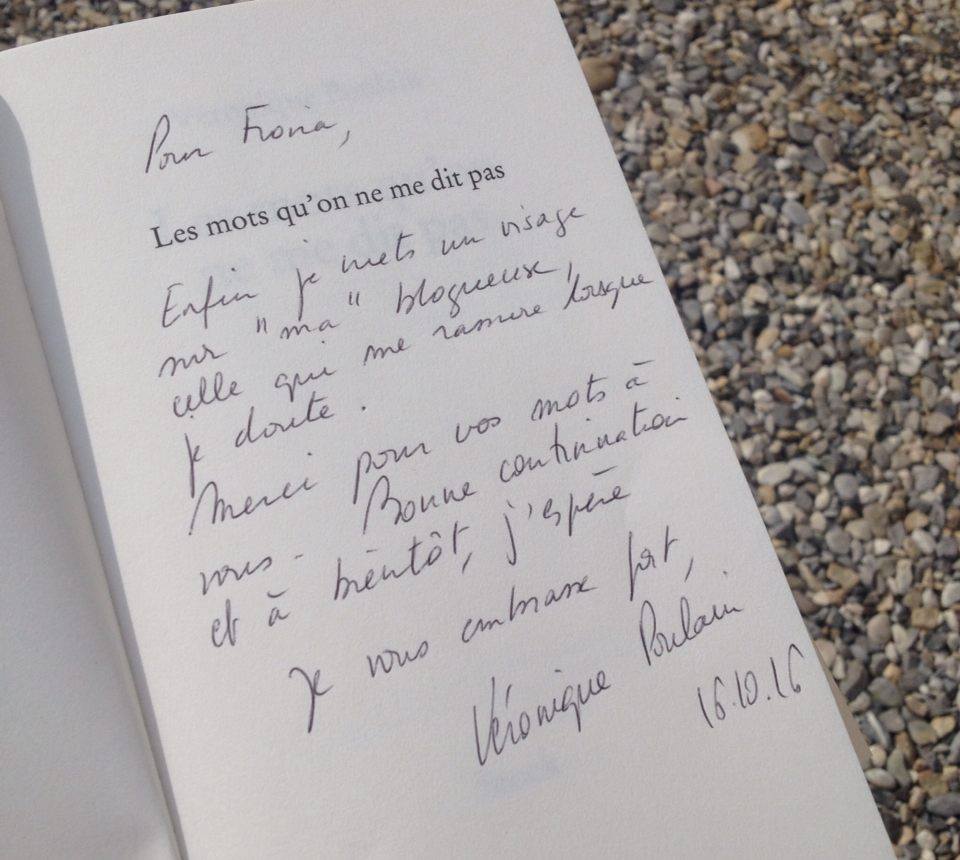 Pour Fiona,
Les mots qu'on ne me dit pas
Enfin je mets un visage
sur "ma" blogueuse,
celle qui me ramure lorsque
je doute.
Merci pour vos mots à
vous - Bonne continuation
et à bientôt, j'espère
Je vous embrasse fort,
Véronique Poulain
16.10.16